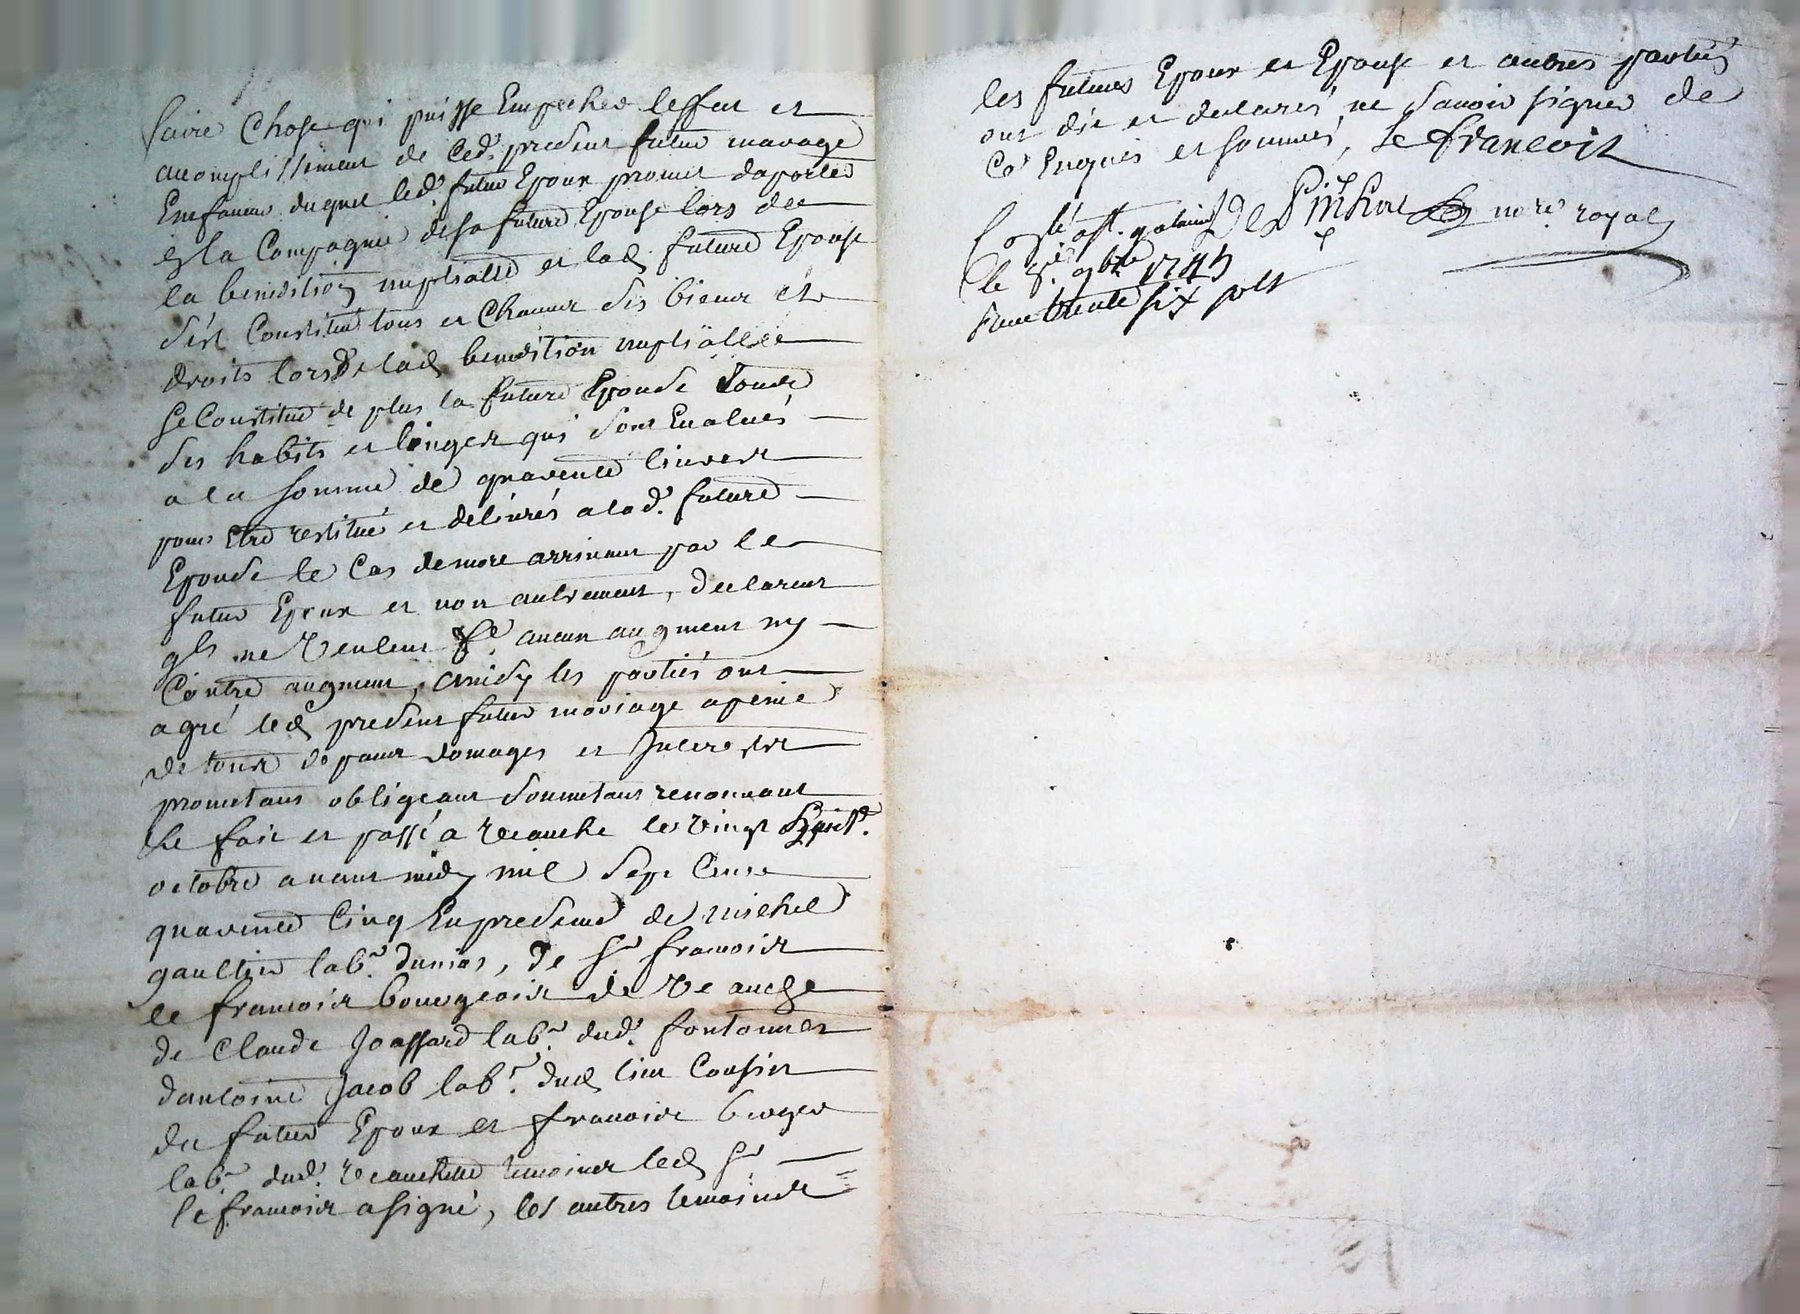 faire chose qui puisse Empecher leffet et
acomplissement de ced. present futur mariage
En faveur duquel led. futur Epoux promet daporter
a la Compagnie de sa future Epouse lors de
la benedition nuptialle et lad. future Epouse
sest Constitué tous et Chacuns ses biens et
droits lors de lad. benedition nuptialle
se Constitue de plus la future Epouse
des habits et linges qui sont Evalués
a la somme de quarente livres
pour Etre restitué et delivrés a lad. future
Epouse le Cas de mort arrivant par le
futur Epoux et non autrement, declarant
qls ne veulent aucun augment ny
Contre augment, ainsy les parties ont
agré led. present futur mariage a peine
de tous depans domages et Interests
prometans obligeans soumetans renonceant
le fait et passé a veauche le vingt
octobre avant midy mil sept Cens
quarente Cinq En presence de michel
gaultier labr. , de sr francois
le francois bourgeois de veauche
de Claude Joassard labr. dud. fontannes
dantoine Jacob labr. dud. lieu Cousin
du futur Epoux et francois berger
labr. dud. temoins led. sr
le francois a signé, les autres temoins
les futurs Epoux et Epouse et autres parties
ont dit et declarés ne savoir signer de
Ce Enquis et sommés, le francois
not.re royal
le 8e. 9bre 1745
trente six sols